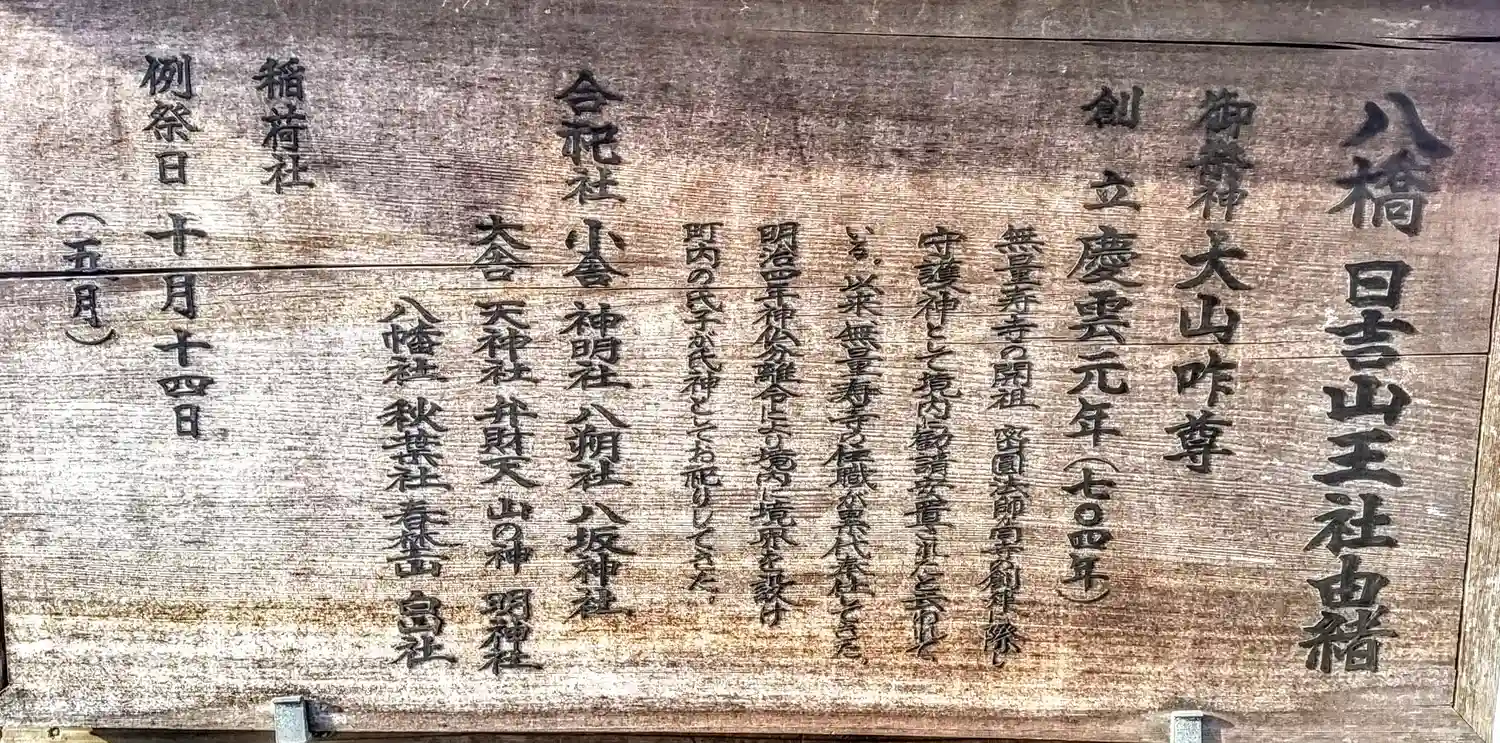 八橋 日吉山王社由緒
御祭神 大山咋尊
創立 慶雲元年(七〇四年)
無量寿寺の開祖 密圓大師が同寺の創建に際し
守護神として境内に勧請安置されたと云われて
いる。以来 無量寿寺の住職が累代奉仕してきた。
明治四年神仏分離令により境内に境界を設け
町内の氏子が氏神としてお祀りしてきた。
合祀社 小舎 神明社 八朔社 八坂神社
大舎 天神社 弁財天 山の神 明神社
八幡社 秋葉社 春埜山 白山社
稲荷社
例祭日 十月十四日
(五月)